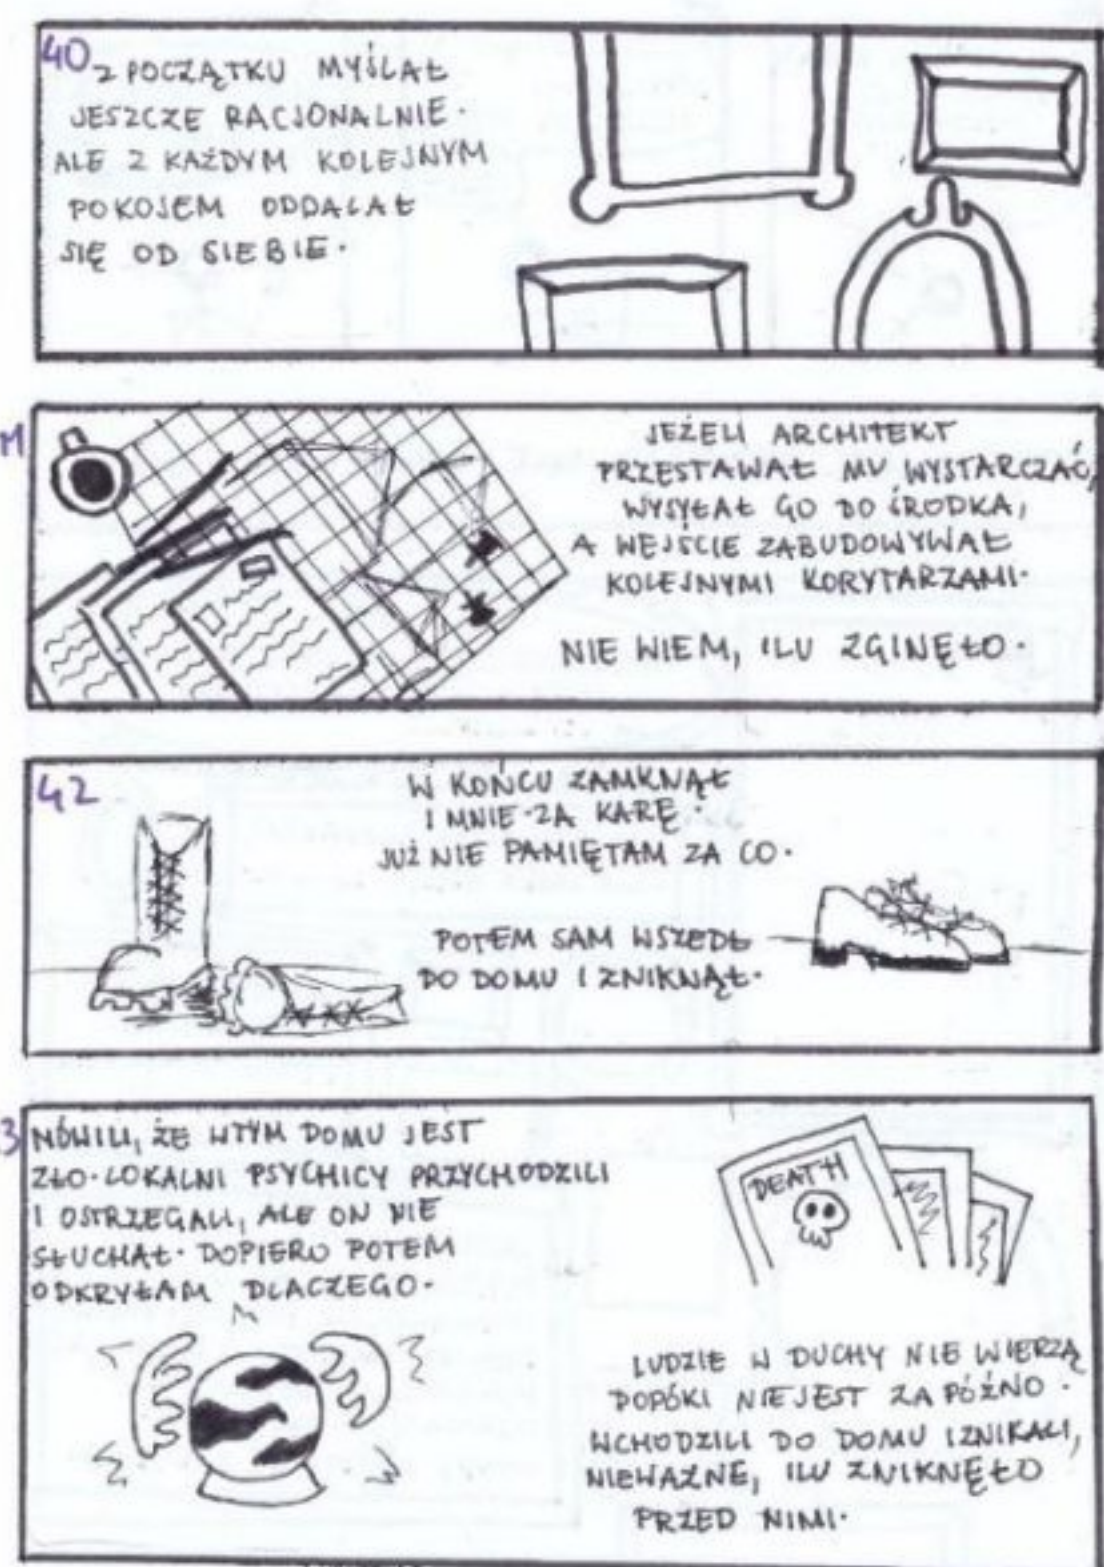 40
Z POCZĄTKU MYŚLAŁ
JESZCZE RACJONALNIE.
ALE Z KAŻDYM KOLEJNYM
POKOJEM ODDALAŁ
SIĘ OD SIEBIE.
JEŻELI ARCHITEKT
PRZESTAWAŁ MU WYSTARCZAĆ,
WYSYŁAŁ GO DO ŚRODKA,
A WEJŚCIE ZABUDOWYWAŁ
KOLEJNYMI KORYTARZAMI.
NIE WIEM, ILU ZGINĘŁO.
42
W KOŃCU ZAMKNĄŁ
I MNIE-ZA KARĘ.
JUŻ NIE PAMIĘTAM ZA CO.
POTEM SAM WSZEDŁ
DO DOMU I ZNIKNĄŁ.
3
MÓWILI, ŻE W TYM DOMU JEST
ZŁO. LOKALNI PSYCHICY PRZYCHODZILI
I OSTRZEGALI, ALE ON NIE
SŁUCHAŁ. DOPIERO POTEM
ODKRYŁAM DLACZEGO.
DEATH
LUDZIE W DUCHY NIE WIERZĄ
DOPÓKI NIE JEST ZA PÓŹNO.
WCHODZILI DO DOMU I ZNIKALI,
NIEWAŻNE, ILU ZNIKNĘŁO
PRZED NIMI.